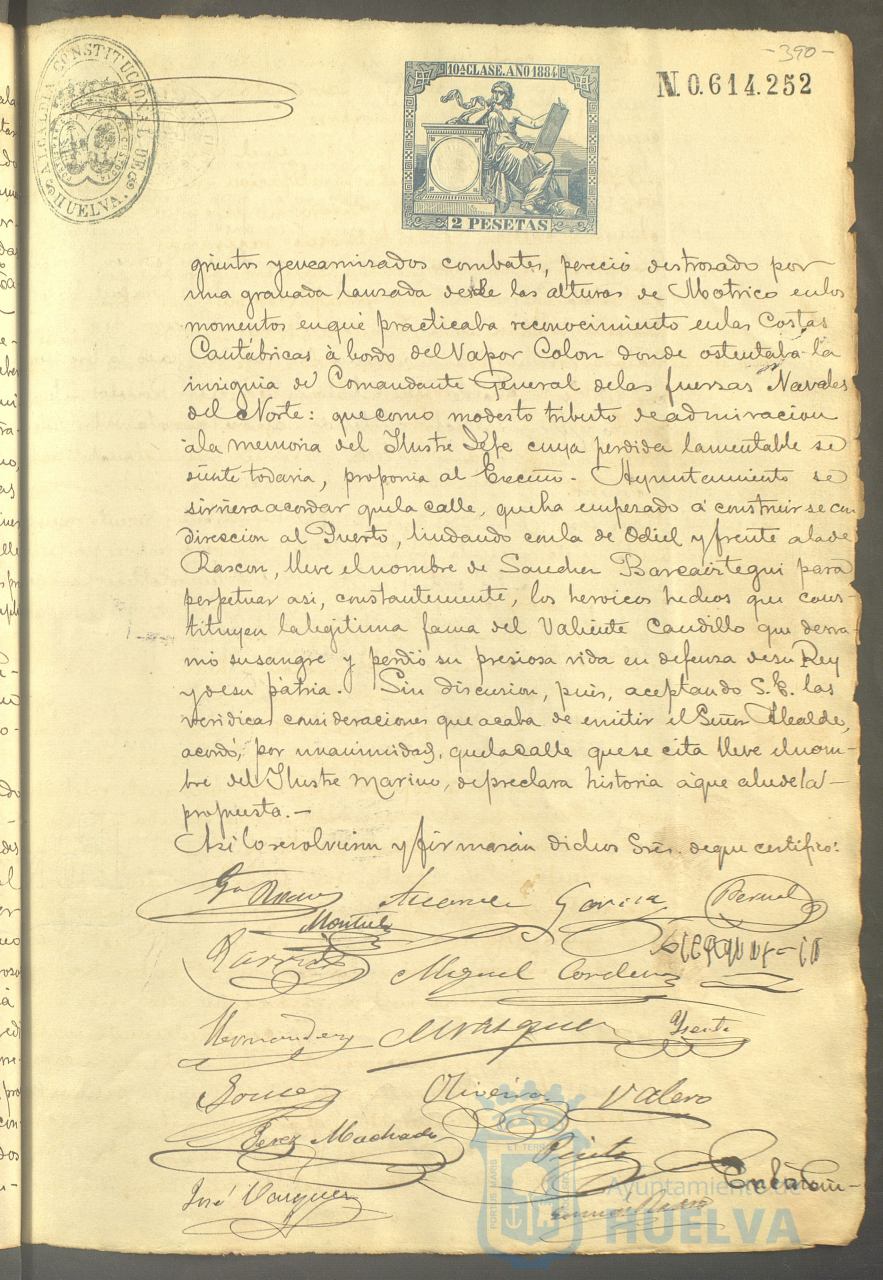 -390-
ALCALDIA CONSTITUCIONAL DE HUELVA.
10ª CLASE. AÑO 1884
N. 0.614.252
2 PESETAS
grientos y encarnizados combates, pereció destrozado por
una granada lanzada desde las alturas de Motrico en los
momentos en qué practicaba reconocimiento en las Costas
Cantábricas á bordo del Vapor Colon donde ostentaba la
insignia de Comandante General de las fuerzas Navales
del Norte: que como modesto tributo de admiracion
á la memoria del Ilustre Jéfe cuya perdida lamentable se
siente todavia, proponia al Excmo. Ayuntamiento se
sirviera acordar que la calle, que ha empesado á construirse con
direccion al Puerto, lindando con la de Odiel y frente a la de
Rascon, lleve el nombre de Sanchez Barcaiztegui para
perpetuar asi, constantemente, los heroicos hechos que cons-
tituyen la legitima fama del Valiente Caudillo que derra-
mó su sangre y perdió su presiosa vida en defenza de su Rey
y de su pátria. Sin discusion, pues, aceptando S.E. las
veridicas consideraciones que acaba de emitir el Señor Alcalde,
acordó, por unanimidad, que la calle que se cita lleve el nom-
bre del Ilustre marino, de preclara historia á que alude la
propuesta.—
Asi lo resolvieron y firmarán dichos Sres. de que certifico:
Garcia Bernal
Montiel
Garrido Miguel Cordero
Hernandez M Vazquez Ysente
Gomez Oliveira Valero
Perez Machado Pinto
José Vazquez
ET TERRAE
PORTUS MARIS
Ayuntamiento de
HUELVA